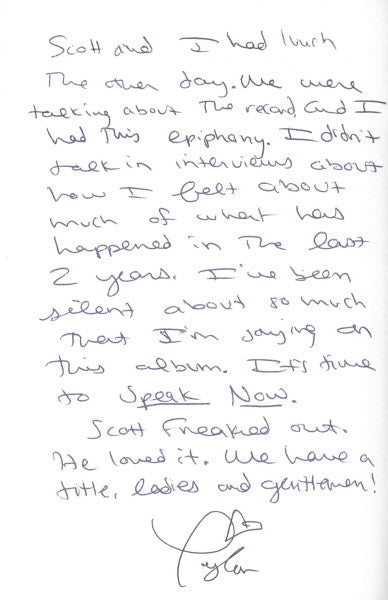 Scott and I had lunch
The other day. We were
talking about The record, and I
had This epiphany. I didn't
talk in interviews about
how I felt about
much of what has
happened in The last
2 years. I've been
silent about so much
That I'm saying on
this album. It's time
to Speak Now.
Scott Freaked out.
He loved it. We have a
title, ladies and gentlemen!
Taylor